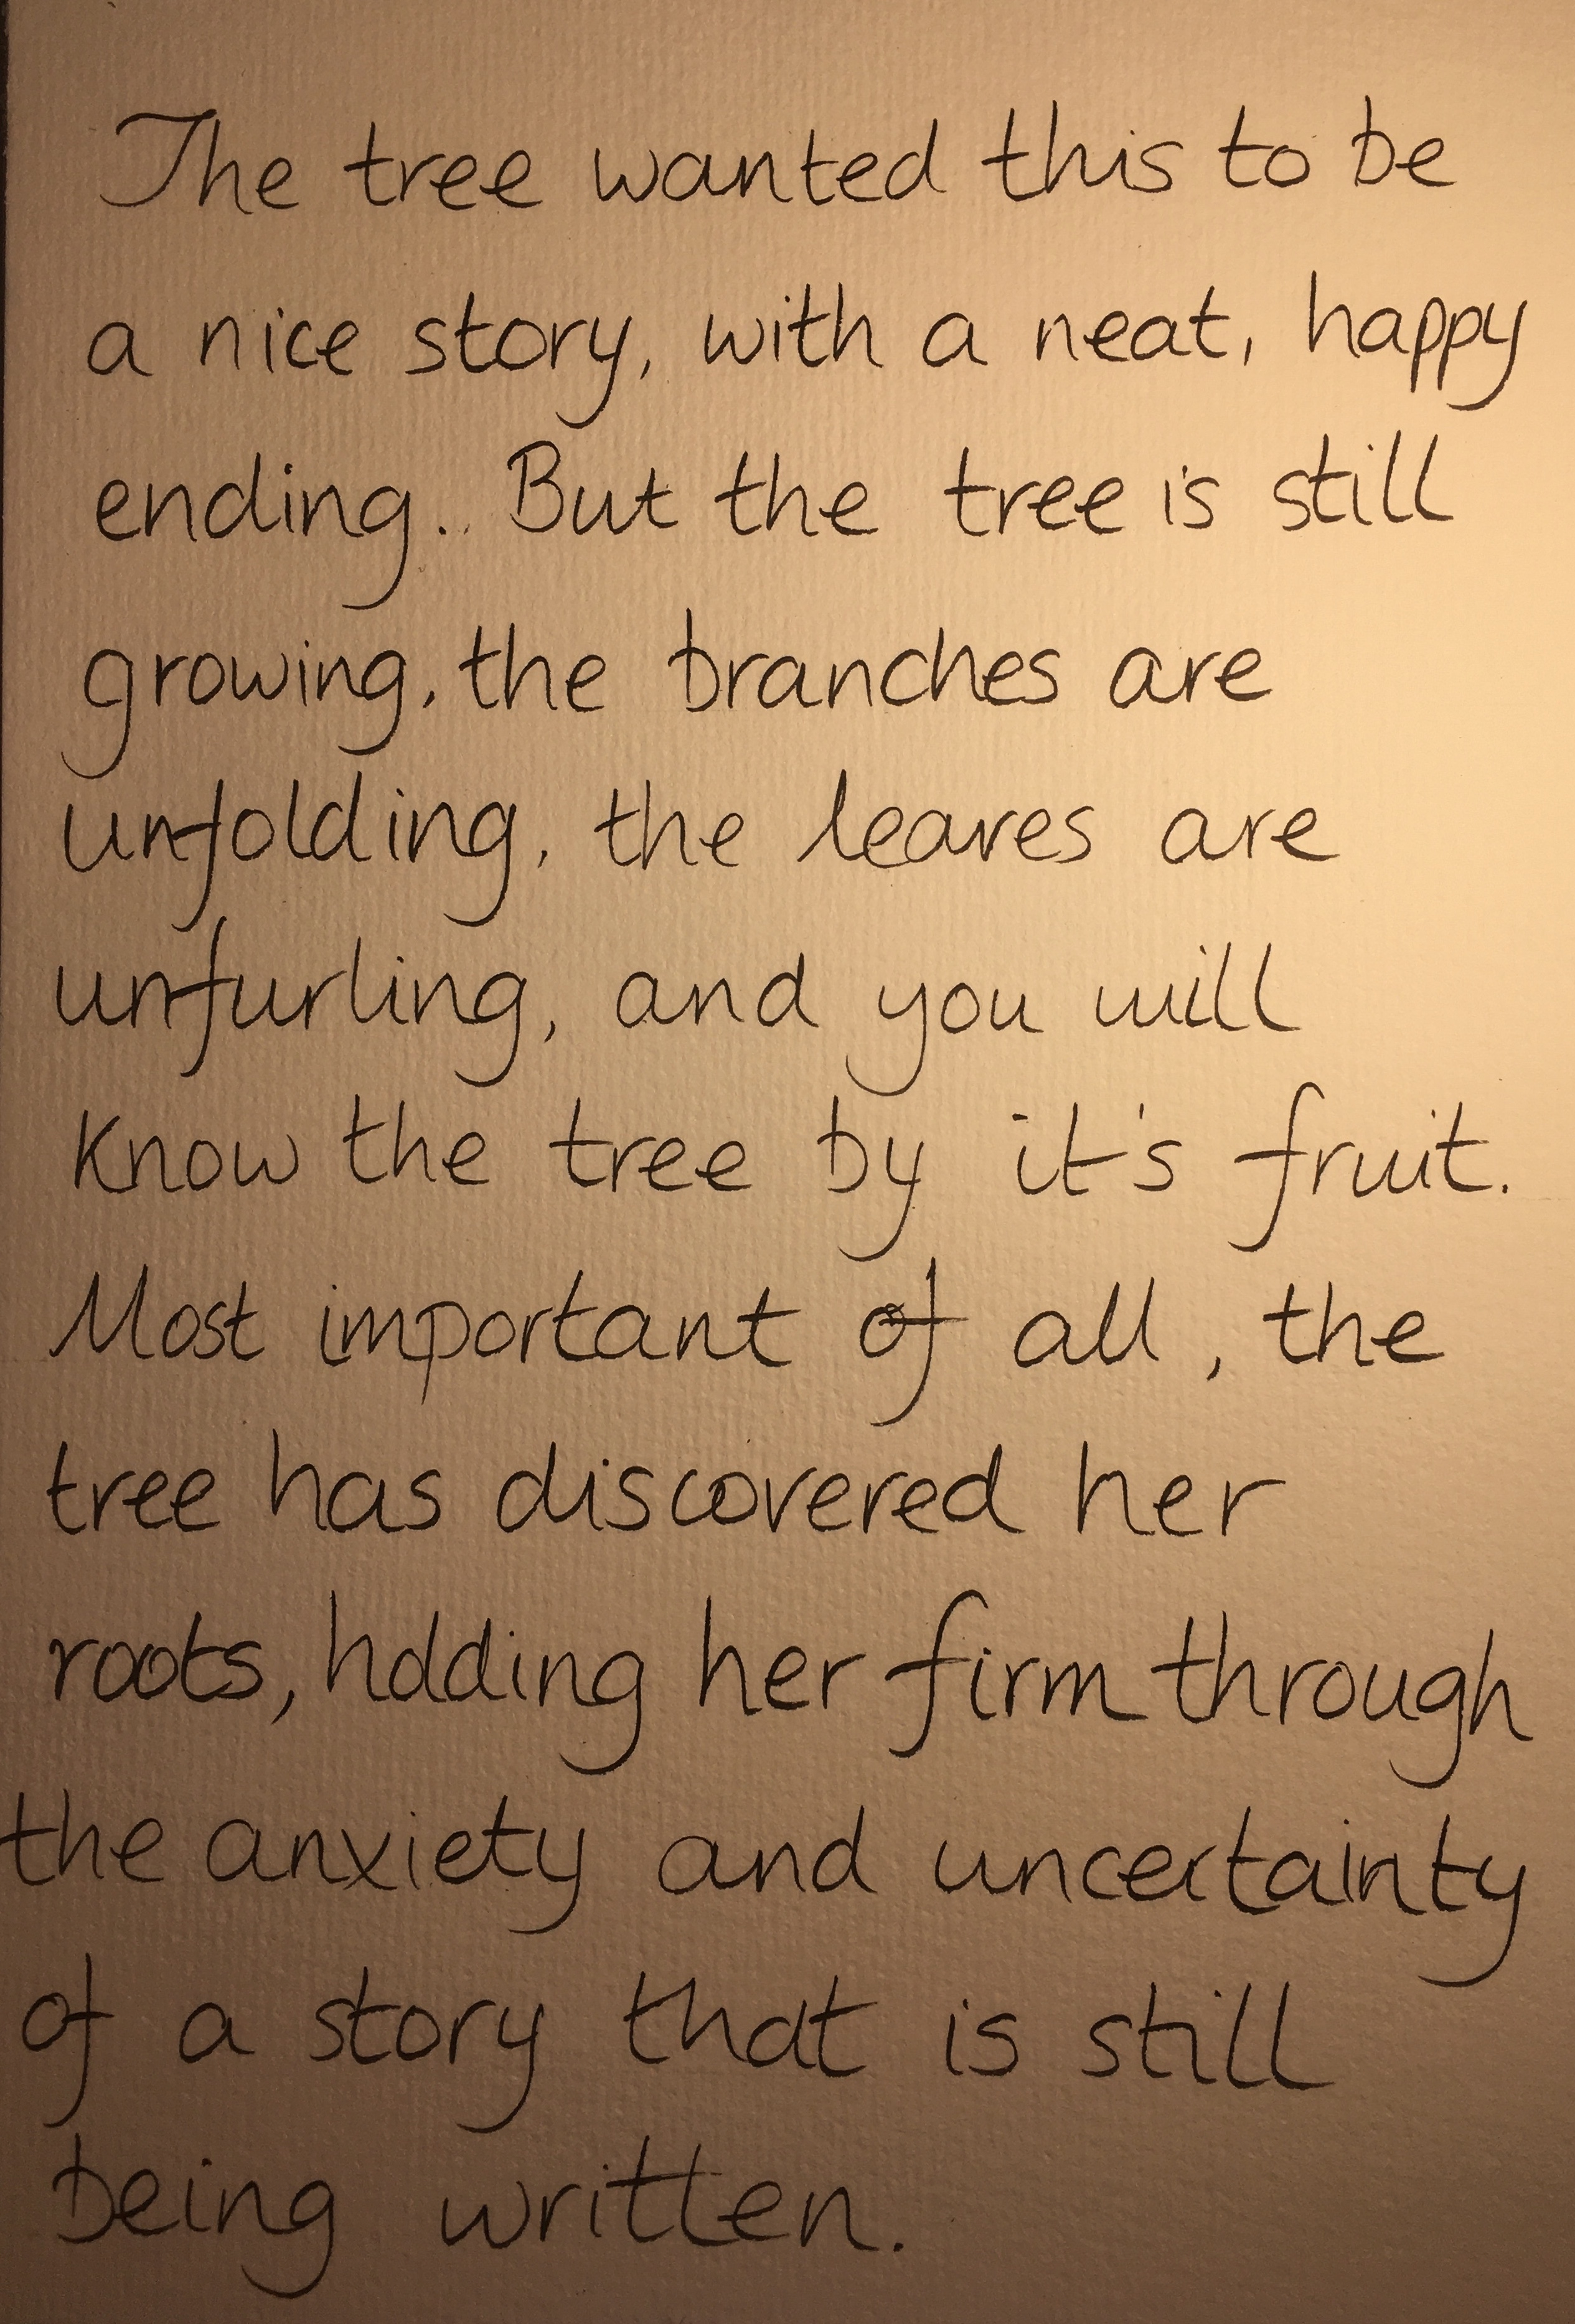 The tree wanted this to be
a nice story, with a neat, happy
ending.. But the tree is still
growing, the branches are
unfolding, the leaves are
unfurling, and you will
know the tree by it's fruit.
Most important of all, the
tree has discovered her
roots, holding her firm through
the anxiety and uncertainty
of a story that is still
being written.